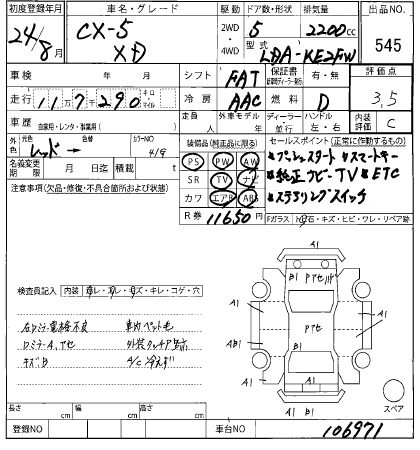 初度登録年月 車名・グレード 駆動 ドア数・形状 排気量 出品NO.
24/8月 CX-5 XD 2WD・4WD 5 2200cc 545
型式 LDA-KE2FW
車検 年 月 シフト FAT 保証書 有・無 評価点
走行 11万7千290 キロ マイル 冷房 AAC 燃料 D 3.5
車歴 自家用・レンタ・事業用( ) 定員 人 外車モデル 年 ディーラー 並行 ハンドル 左・右 内装評価 C
外色 元色 レッド → 色替 カラーNO 41V 装備品(純正品に限る) セールスポイント(正常に作動するもの)
名義変更期限 月 日迄 積載 t PS PW AW プッシュスタート スマートキー
注意事項(欠品・修復・不具合箇所および状態) SR TV ナビ 純正ナビ・TV ETC
カワ エアB ABS ステアリングスイッチ
R券 11650円 Fガラス 飛石・キズ・ヒビ・ワレ・リペア跡
検査員記入 内装 コレ・スレ・キズ・キレ・コゲ・穴
右Dミラー電格不良 車内ペット毛
Dミラーアセ
キズB A/C冷えず
A1 B1 Pアセ A1
A1 A1
AB1 Pアセ A1
A1 A1
B1
A1 B1
スペア
長さ cm 幅 cm 高さ cm
登録NO 車台NO 106971